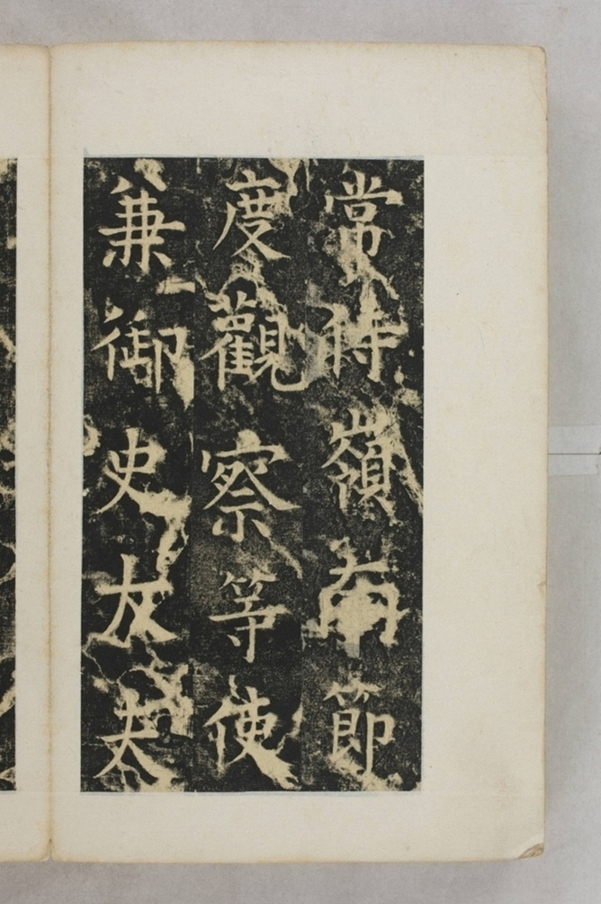 常侍嶺南節
度觀察等使
兼御史大夫